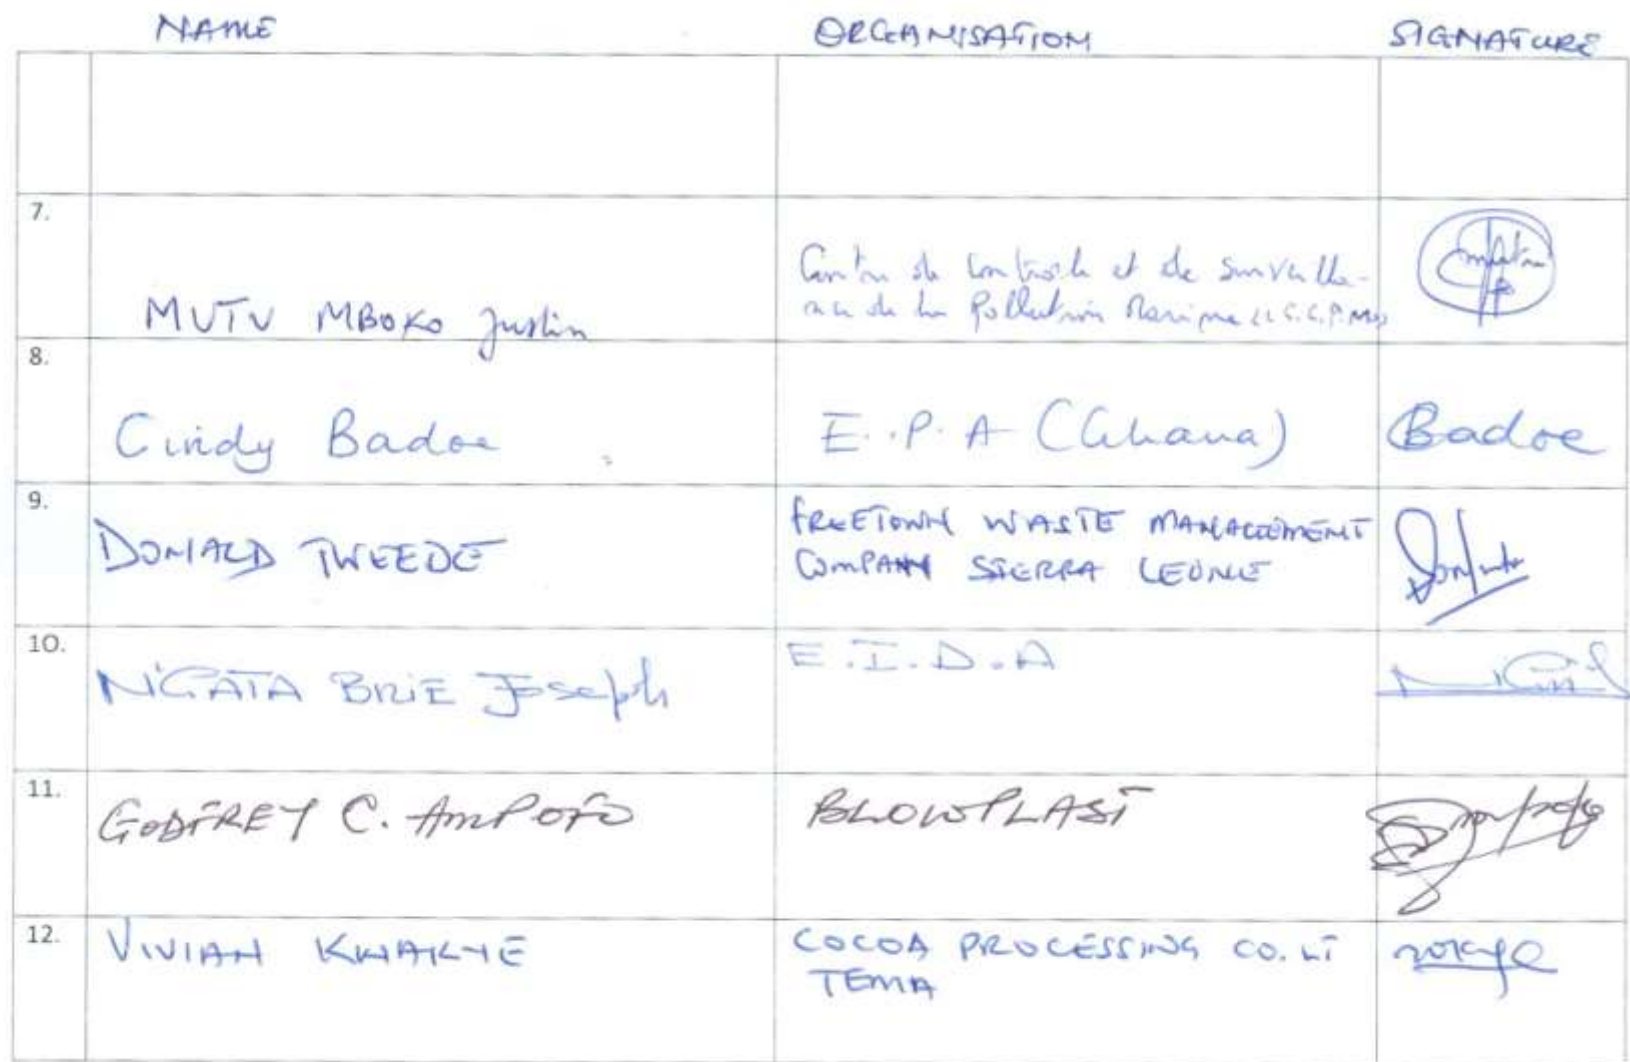 NAME ORGANISATION SIGNATURE
7.
MUTU MBOKO Justin
Centre de Controle et de Surveilla-
nce de la Pollution Marine
8.
Cindy Badoe E.P.A (Ghana) Badoe
9.
DONALD TWEEDE
FREETOWN WASTE MANAGEMENT
COMPANY SIERRA LEONE
10.
NGATA BRIE Joseph E.I.D.A
11.
GODFREY C. AMPOFO BLOWPLAST
12.
VIVIAN KWAKYE
COCOA PROCESSING CO. LT
TEMA